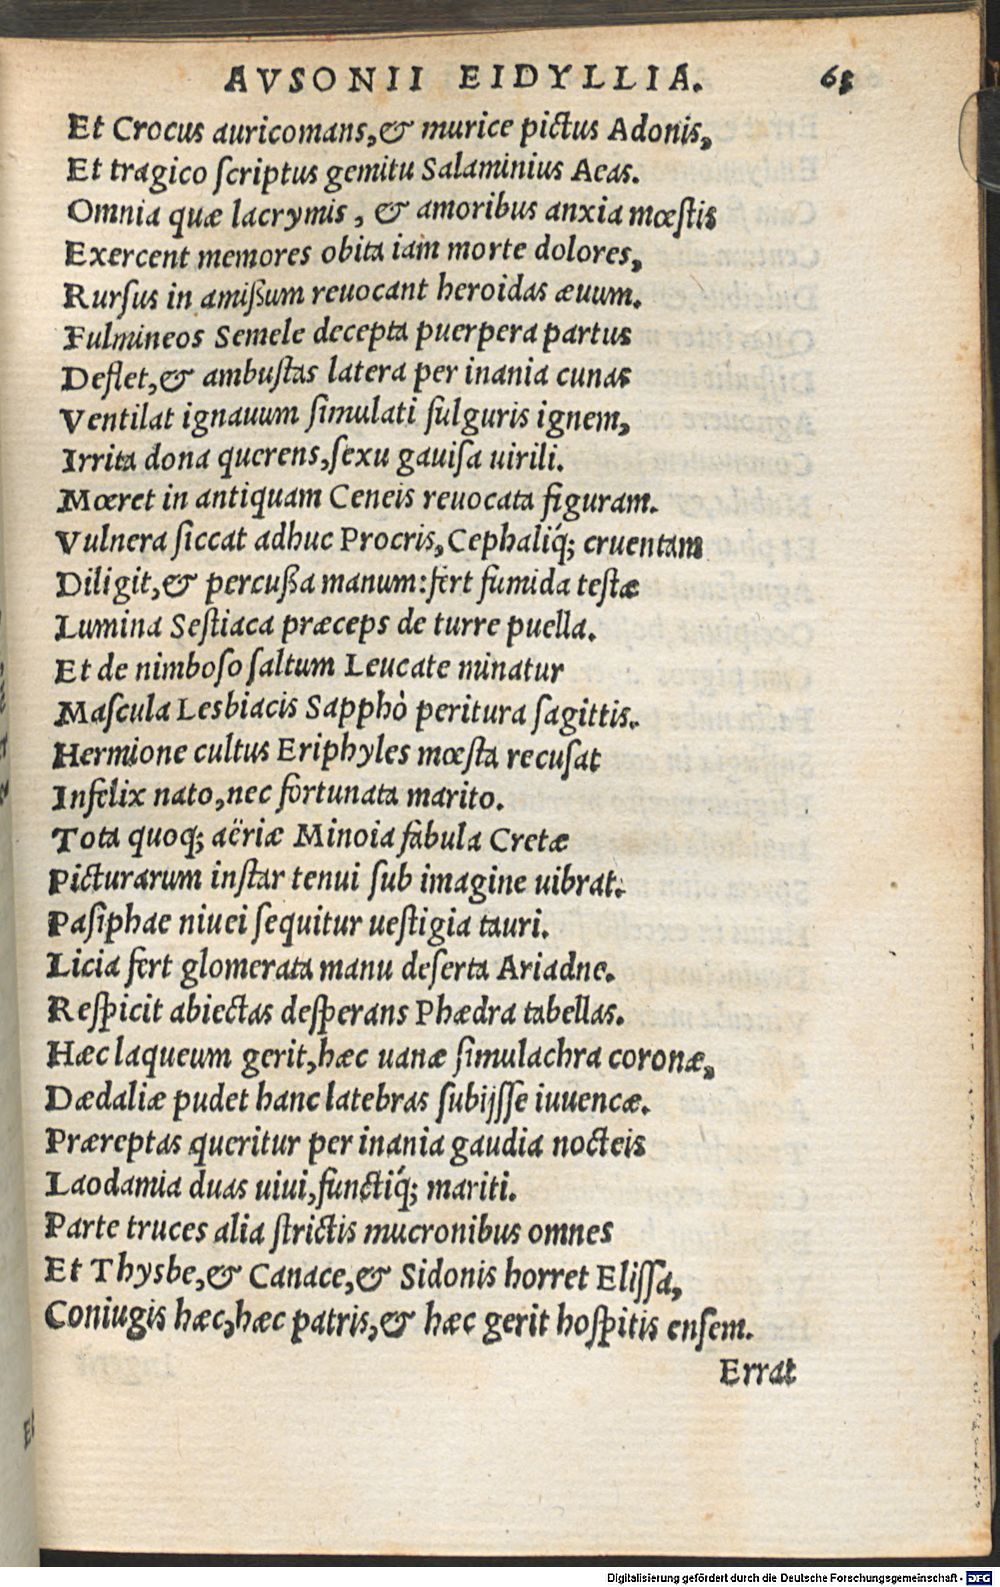 AVSONII EIDYLLIA. 65
Et Crocus auricomans,& murice pictus Adonis,
Et tragico ſcriptus gemitu Salaminius Aeas.
Omnia quæ lacrymis, & amoribus anxia mœſtis
Exercent memores obita iam morte dolores,
Rurſus in amißum reuocant heroidas æuum.
Fulmineos Semele decepta puerpera partus
Deflet,& ambuſtas latera per inania cunas
Ventilat ignauum ſimulati fulguris ignem,
Irrita dona querens,ſexu gauiſa uirili.
Mœret in antiquam Ceneis reuocata figuram.
Vulnera ſiccat adhuc Procris,Cephaliq́; cruentam
Diligit,& percußa manum:fert fumida teſtæ
Lumina Seſtiaca præceps de turre puella.
Et de nimboſo ſaltum Leucate minatur
Maſcula Lesbiacis Sapphò peritura ſagittis.
Hermione cultus Eriphyles mœſta recuſat
Infelix nato,nec fortunata marito.
Tota quoq; aëriæ Minoia fabula Cretæ
Picturarum inſtar tenui ſub imagine uibrat.
Paſiphae niuei ſequitur ueſtigia tauri.
Licia fert glomerata manu deſerta Ariadne.
Reſpicit abiectas deſperans Phædra tabellas.
Hæc laqueum gerit,hæc uanæ ſimulachra coronæ,
Dædaliæ pudet hanc latebras ſubijſſe iuuencæ.
Præreptas queritur per inania gaudia nocteis
Laodamia duas uiui,functiq́; mariti.
Parte truces alia ſtrictis mucronibus omnes
Et Thysbe,& Canace,& Sidonis horret Eliſſa,
Coniugis hæc,hæc patris,& hæc gerit hoſpitis enſem.
Errat
Digitalisierung gefördert durch die Deutsche Forschungsgemeinschaft - DFG